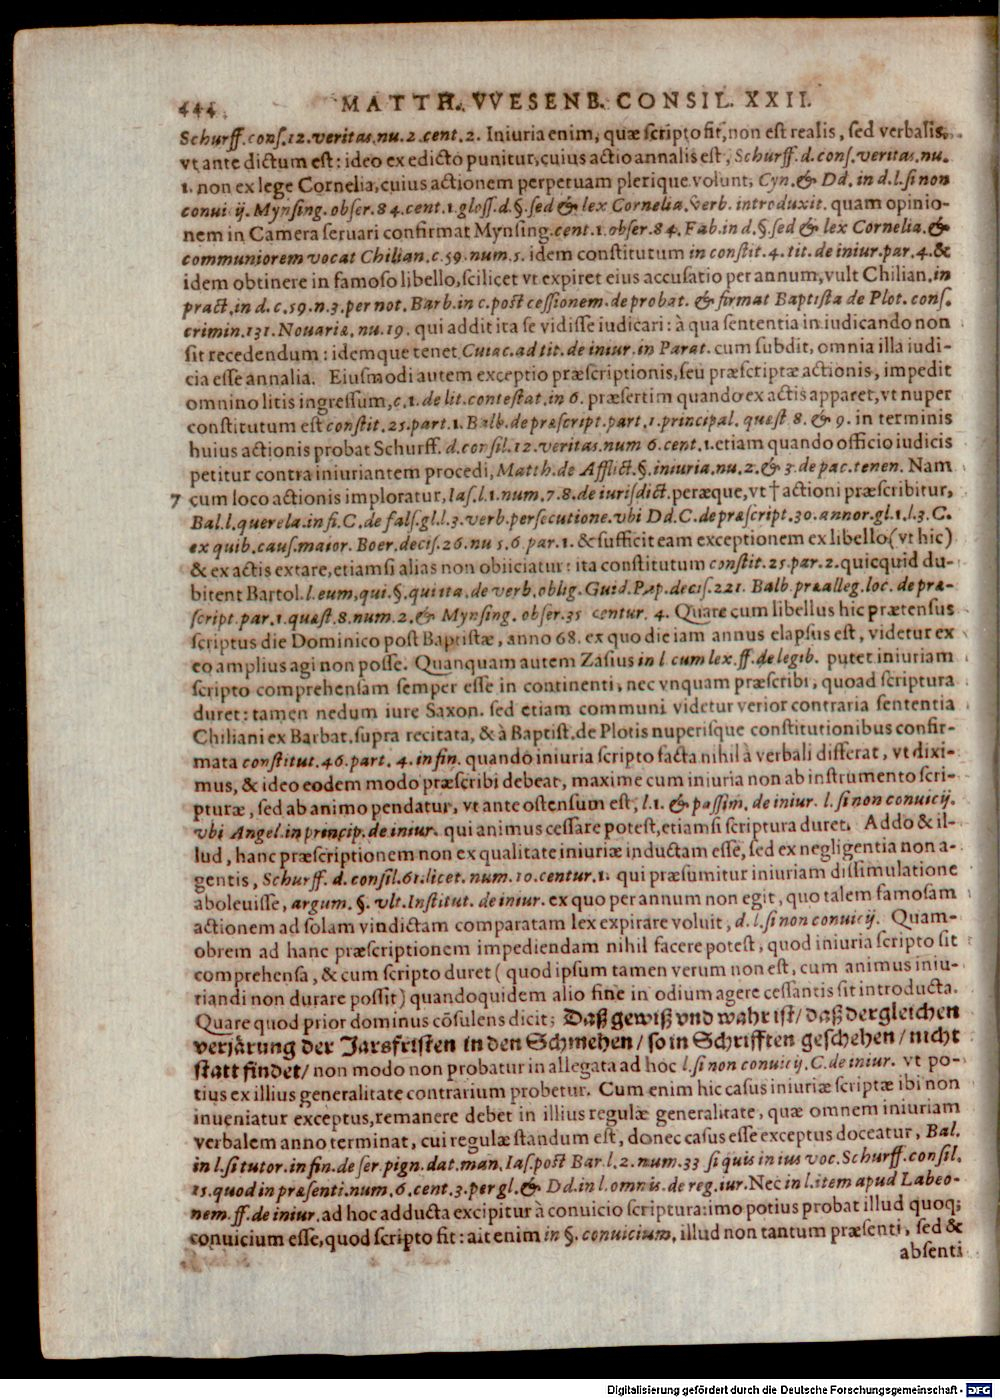 444. MATTH. VVESENB. CONSIL. XXII.
Schurff. cons. 12. veritas. nu. 2. cent. 2. Iniuria enim, quæ scripto fit, non est realis, sed verbalis,
vt ante dictum est: ideo ex edicto punitur, cuius actio annalis est, Schurff. d. cons. veritas. nu.
1. non ex lege Cornelia, cuius actionem perpetuam plerique volunt, Cyn. & Dd. in d. l. si non
conuicij. Mynsing. obser. 84. cent. 1. gloss. d. §. sed & lex Cornelia. verb. introduxit. quam opinio-
nem in Camera seruari confirmat Mynsing. cent. 1. obser. 84. Fab. in d. §. sed & lex Cornelia. &
communiorem vocat Chilian. c. 59. num. 5. idem constitutum in constit. 4. tit. de iniur. par. 4. &
idem obtinere in famoso libello, scilicet vt expiret eius accusatio per annum, vult Chilian. in
pract. in d. c. 59. n. 3. per not. Barb. in c. post cessionem. de probat. & firmat Baptista de Plot. cons.
crimin. 131. Nouariæ. nu. 19. qui addit ita se vidisse iudicari: à qua sententia in iudicando non
sit recedendum: idemque tenet Cuiac. ad tit. de iniur. in Parat. cum subdit, omnia illa iudi-
cia esse annalia. Eiusmodi autem exceptio præscriptionis, seu præscriptæ actionis, impedit
omnino litis ingressum, c. 1. de lit. contestat. in 6. præsertim quando ex actis apparet, vt nuper
constitutum est constit. 25. part. 1. Balb. de præscript. part. 1. principal. quæst. 8. & 9. in terminis
huius actionis probat Schurff. d. consil. 12. veritas. num 6. cent. 1. etiam quando officio iudicis
petitur contra iniuriantem procedi, Matth. de Afflict. §. iniuria. nu. 2. & 3. de pac. tenen. Nam
7 cum loco actionis imploratur, Ias. l. 1. num. 7. 8. de iurisdict. peræque, vt † actioni præscribitur,
Bal. l. querela. in fi. C. de fals. gl. l. 3. verb. persecutione. vbi Dd. C. de præscript. 30. annor. gl. 1. l. 3. C.
ex quib. caus. maior. Boer. decis. 26. nu 5. 6. par. 1. & sufficit eam exceptionem ex libello (vt hic)
& ex actis extare, etiamsi alias non obiiciatur: ita constitutum constit. 25. par. 2. quicquid du-
bitent Bartol. l. eum, qui. §. qui ita. de verb. oblig. Guid. Pap. decis. 221. Balb. præalleg. loc. de præ-
script. par. 1. quæst. 8. num. 2. & Mynsing. obser. 35 centur. 4. Quare cum libellus hic prætensus
scriptus die Dominico post Baptistæ, anno 68. ex quo die iam annus elapsus est, videtur ex
eo amplius agi non posse. Quanquam autem Zasius in l cum lex. ff. de legib. putet iniuriam
scripto comprehensam semper esse in continenti, nec vnquam præscribi, quoad scriptura
duret: tamen nedum iure Saxon. sed etiam communi videtur verior contraria sententia
Chiliani ex Barbat. supra recitata, & à Baptist. de Plotis nuperisque constitutionibus confir-
mata constitut. 46. part. 4. in fin. quando iniuria scripto facta nihil à verbali differat, vt dixi-
mus, & ideo eodem modo præscribi debeat, maxime cum iniuria non ab instrumento scri-
pturæ, sed ab animo pendatur, vt ante ostensum est, l. 1. & passim. de iniur. l. si non conuicij.
vbi Angel. in princip. de iniur. qui animus cessare potest, etiamsi scriptura duret. Addo & il-
lud, hanc præscriptionem non ex qualitate iniuriæ inductam esse, sed ex negligentia non a-
gentis, Schurff. d. consil. 61. licet. num. 10. centur. 1. qui præsumitur iniuriam dissimulatione
aboleuisse, argum. §. vlt. Institut. de iniur. ex quo per annum non egit, quo talem famosam
actionem ad solam vindictam comparatam lex expirare voluit, d. l. si non conuicij. Quam-
obrem ad hanc præscriptionem impediendam nihil facere potest, quod iniuria scripto sit
comprehensa, & cum scripto duret (quod ipsum tamen verum non est, cum animus iniu-
riandi non durare possit) quandoquidem alio fine in odium agere cessantis sit introducta.
Quare quod prior dominus cōsulens dicit; Daß gewiß vnd wahr ist/ daß dergleichen
verjärung der Jarsfristen in den Schmehen/ so in Schrifften geschehen/ nicht
statt findet/ non modo non probatur in allegata ad hoc l. si non conuicij. C. de iniur. vt po-
tius ex illius generalitate contrarium probetur. Cum enim hic casus iniuriæ scriptæ ibi non
inueniatur exceptus, remanere debet in illius regulæ generalitate, quæ omnem iniuriam
verbalem anno terminat, cui regulæ standum est, donec casus esse exceptus doceatur, Bal.
in l. si tutor. in fin. de ser. pign. dat. man. Ias. post Bar. l. 2. num. 33 si quis in ius voc. Schurff. consil.
15. quod in præsenti. num. 6. cent. 3. per gl. & Dd. in l. omnis. de reg. iur. Nec in l. item apud Labeo-
nem. ff. de iniur. ad hoc adducta excipitur à conuicio scriptura: imo potius probat illud quoq;
conuicium esse, quod scripto fit: ait enim in §. conuicium, illud non tantum præsenti, sed &
absenti
Digitalisierung gefördert durch die Deutsche Forschungsgemeinschaft - DFG